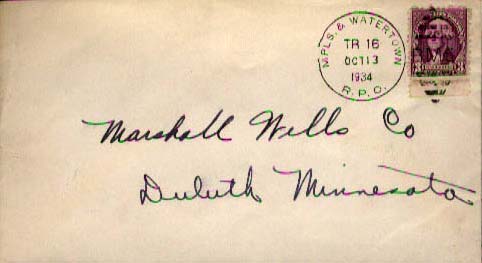 MPLS. & WATERTOWN
TR 16
OCT 13
1934
R. P. O.
3 3
Marshall Wells Co
Duluth Minnesota